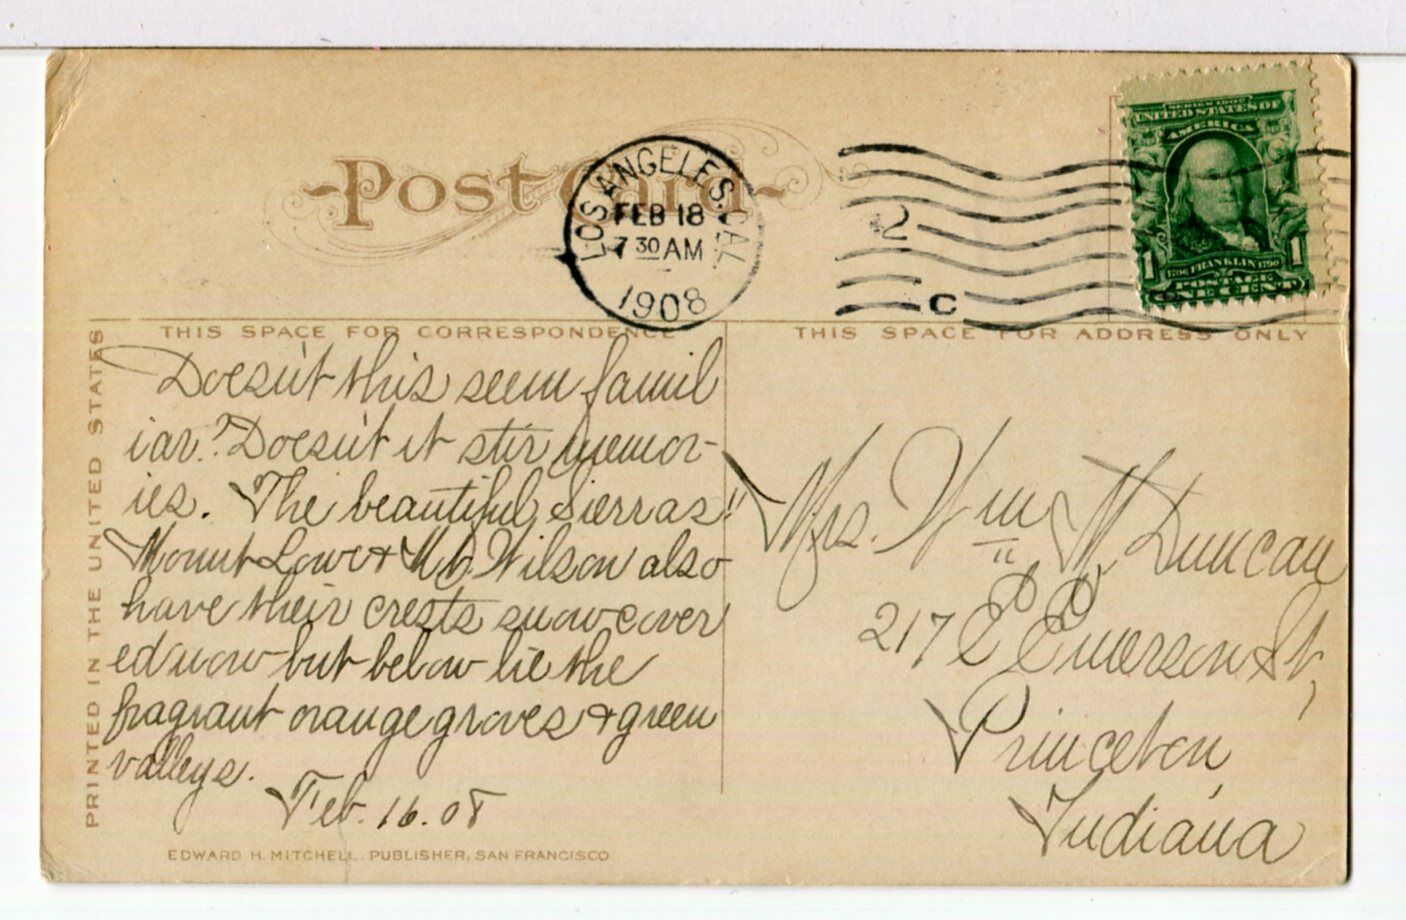 Post Card
LOS ANGELES. CAL.
FEB 18
7 30 AM
1908
2
C
SERIES 1902
UNITED STATES OF
AMERICA
1706 FRANKLIN 1790
1 1
POSTAGE
ONE CENT
THIS SPACE FOR CORRESPONDENCE
THIS SPACE FOR ADDRESS ONLY
PRINTED IN THE UNITED STATES
Doesn't this seem famil
iar? Doesn't it stir memor-
ies. The beautiful Sierras!!
Mount Lowe & Mt. Wilson also
have their crests snow cover
ed now but below lie the
fragrant orange groves & green
valleys.
Feb. 16. 08
Mrs. Wm M Duncan
217 E Emerson St,
Princeton,
Indiana
EDWARD H. MITCHELL, PUBLISHER, SAN FRANCISCO